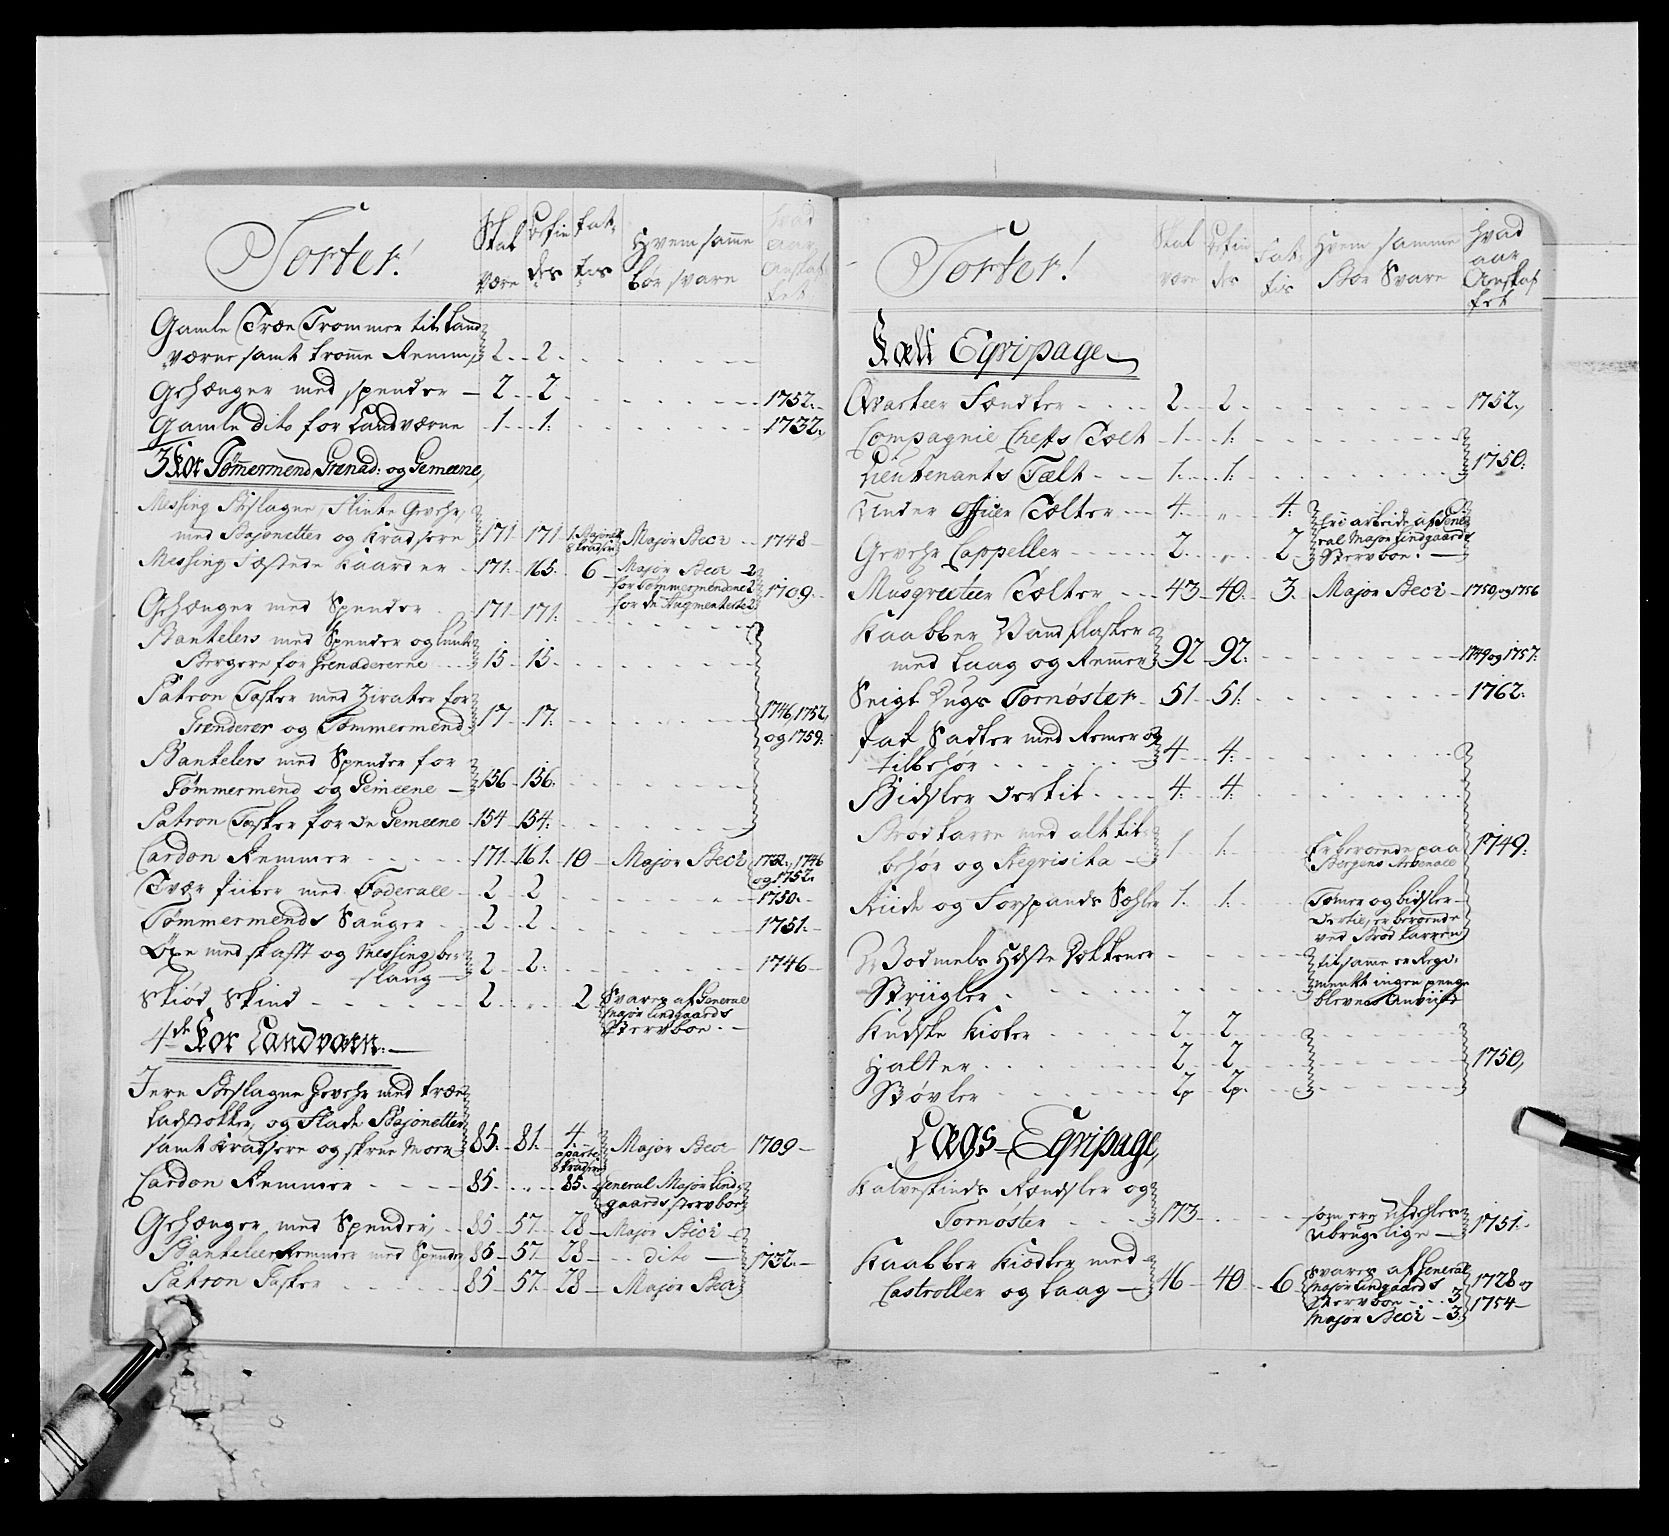 Sorter!
Skal være
Befindes
Fattis
Hvem samme bør svare
Hvad aar Anskaffet
Gamle Træe Trommer til Land
værne samt Tromme Remm, 2 2
Gehænger med spender 2 2 1752.
Gamle dito for Landværne 1 1. 1732.
3 For Tømmermend, Grenad: og Gemeene,
Messing Beslagne Flinte Gevehr,
med Bajonetter og Kradsere 171 171 Major Beck 1748
Messing Fæstede Kaarder 171. 165. 6 Major Beck 2
for Tømmermendene 2
for de Augmenterte 2 1709.
Gehænger med Spender 171 171.
Bantelers med Spender og Lunte
Bergere for Grenadererne 15 15.
Patron Tasker med Zirater for
Grenderer og Tømmermend 17 17. 1746, 1752, og 1759.
Bantelers med Spender for
Tømmermend og Gemeene 156 156.
Patron Tasker for de Gemeene 154 154.
Cardon Remmer 171. 161. 10 Major Beck 1732, 1746 og 1752.
Tvær Piiber med Foderall 2 2 1750.
Tømmermends Sauger 2 2 1751.
Øxe med skafft og Messing be-
slaug 2 2. 1746
Skiød Skind 2 „ 2 Svares af General
Major Lindgaards
Stervboe.
4de For Landværn.
Jern Beslagne Gevehr med træe
Ladstokker, og Flade Bajonetter
samt Kradsere og skrue 85. 81. 4. Major Beck 1709
Cardon Remmer 85 „ 85. General Major Lind-
gaards stervboe
Gehænger med Spender, 85 57. 28 Major Beck
Banteleer Remmer med Spender 85 57. 28 dito 1732.
Patron Tasker 85 57. 28 Major Beck
Sorter!
Skal være
Befindes
Fattis
Hvem samme Bør Svare
Hvad aar Anskaffet
Fælt Eqvipage
Qvarteer Fændker 2 2 1752.
Compagnie Chefs Tælt 1. 1.
Lieutenants Tælt 1. 1. 1750.
Under Officier Tælter 4. „ 4.
Er i arbeide af Gene-
ral Major Lindgaards
Stervboe.
Gevehr Cappeller 2. „ 2
Musqveteer Tælter 43 40. 3. Major Beck 1750, og 1756
Kaabber Vandflasker
med Laag og Remmer 92 92. 1749 og 1757.
Seigl Dugs Tornøster 51 51. 1762.
Pak Sadler med Remer og
tilbehør 4 4.
Bidsler dertil 4. 4.
Brødkarre med alt til-
behør og Reqvisita 1 1. Er beroende paa
Bergens Arsenall 1749.
Riide og Forspands Sehler 1. 1. Tømer og bidsler
dertil, er beroende
ved Brød karren
Wodmels Heste Dekkener
til samme er Regi-
mentt ingen penge
bleven Anviist
Striigler
Kudske Kioler 2 2
Hatter 2 2 1750,
Støvler 2p 2p.
Lags Eqvipage,
Kalveskinds Rændsler og
Tornøster 173 som ere Udslet
Ubrugelige 1751.
Kaabber Kiedler med
Castroller og Laag 46 40 6 Svares af General
Major Lindgaards
Stervboe 3
Major Beck 3. 1728 og 1754